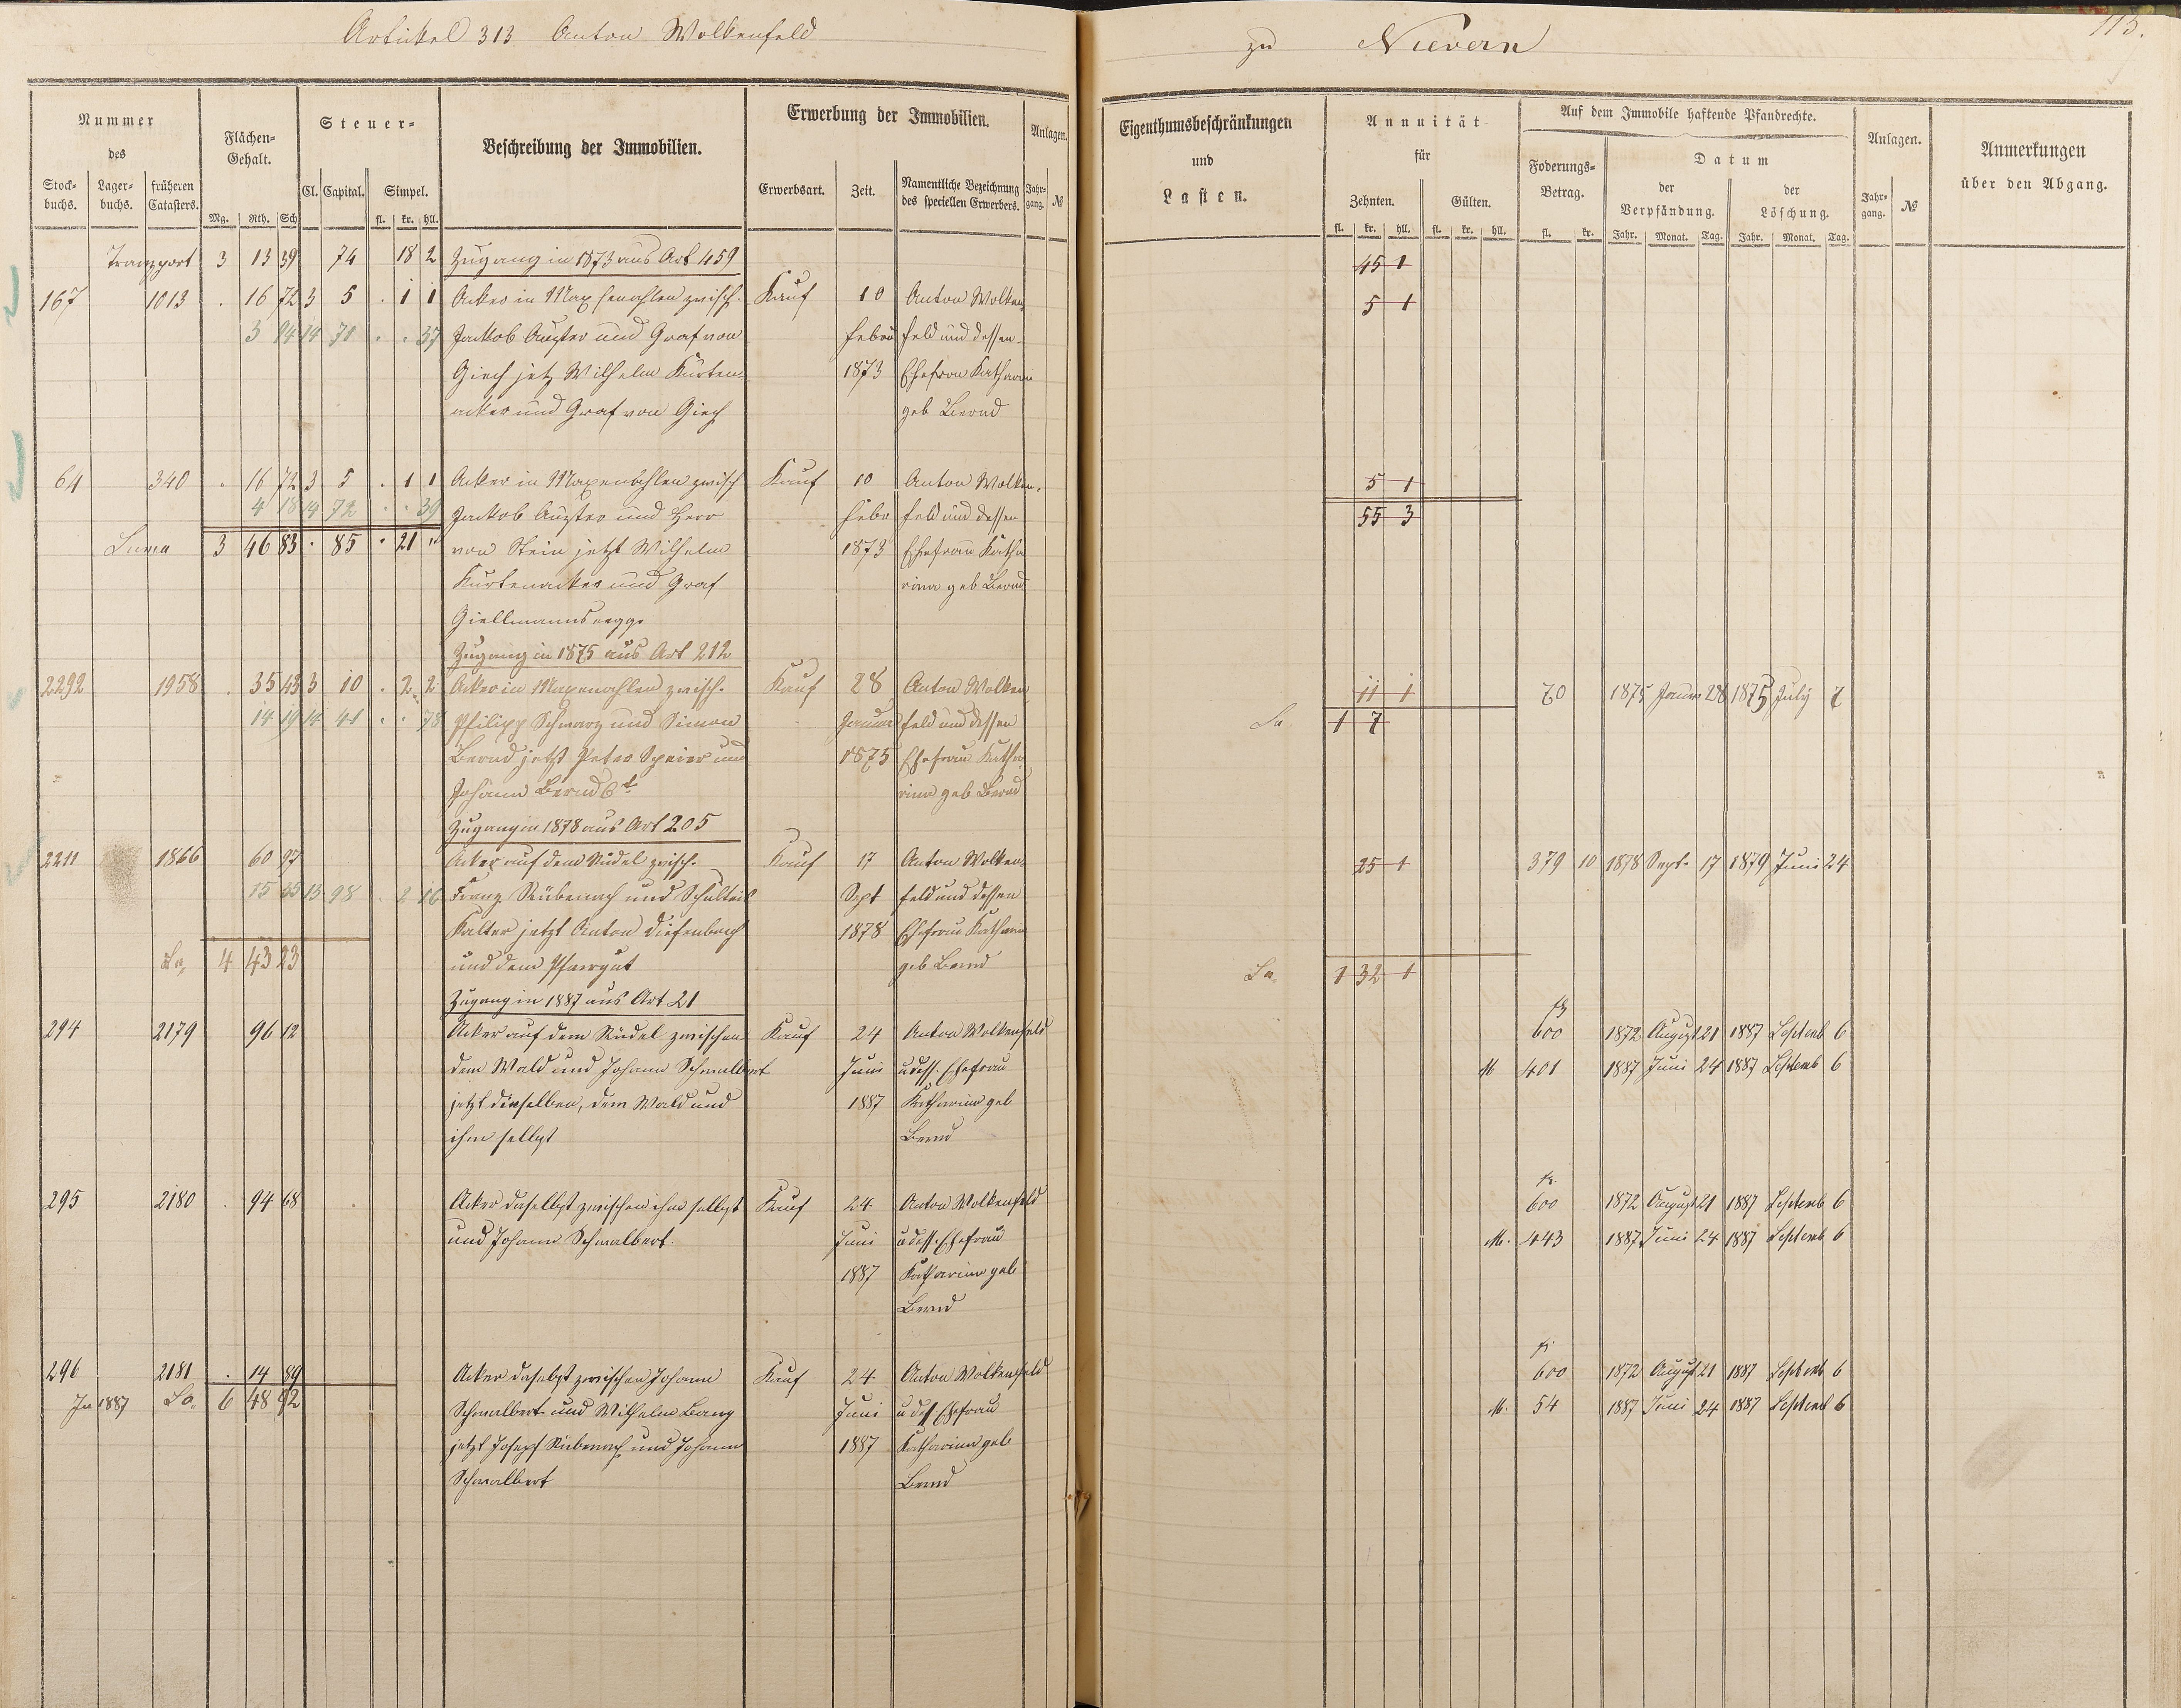 Artikel 313 Anton Wolkenfeld
zu Nievern
113.
Nummer
des
Stock-
buchs.
Lager-
buchs.
früheren
Catasters.
Flächen-
Gehalt.
Mg. Rth. Sch
Steuer-
Cl. Capital. Simpel.
fl. kr. hll.
Beschreibung der Immobilien.
Erwerbung der Immobilien.
Erwerbsart. Zeit.
Namentliche Bezeichnung
des speciellen Erwerbers.
Anlagen.
Jahr-
gang. №
Eigenthumsbeschränkungen
und
Lasten.
Annuität
für
Zehnten. Gülten.
fl. kr. hll. fl. kr. hll.
Auf dem Immobile haftende Pfandrechte.
Foderungs-
Betrag.
fl. kr.
Datum
der
Verpfändung.
der
Löschung.
Jahr. Monat. Tag. Jahr. Monat. Tag.
Anlagen.
Jahr-
gang. №
Anmerkungen
über den Abgang.
Transport 3 13 39 74 18 2 Zugang in 1873 aus Art 459 45 1
167 1013 . 16 72 3 5 . 1 1 Acker in zwisch. Kauf 10 Anton Wolken 5 1
3 94 14 71 . . 37 Jackob und Graf von febru feld und dessen
Giech jetz Wilhelm Kürten 1873 Ehefrau Katharin
acker und Graf von Giech geb Bernd
64 340 . 16 72 3 5 . 1 1 Acker in Maxenahlen zwisch Kauf 10 Anton Wolken. 5 1
4 18 14 72 . . 39 Jackob und Herr febr feld und dessen 55 3
Suma 3 46 83 . 85 . 21 " von Stein jetzt Wilhelm 1873 Ehefrau Katha
Kürtenacker und Graf rina geb Bernd
Zugang in 1875 aus Art 212
2292 1958 . 35 43 3 10 . 2 2 Acker in Maxenahlen zwisch. Kauf 28 Anton Wolken 11 1 70 1875 Janur 28 1875 July 7
14 19 14 41 . . 78 Philipp Schwarz und Simon Januar feld und dessen Sa 1 7
Bernd jetzt Peter Speier und 1875 Ehefrau Katha
Johann Bernd 6t rina geb Bernd
Zugang in 1878 aus Art 205
2211 1866 60 97 Acker auf dem Rüdel zwisch. Kauf 17 Anton Wolken 25 1 379 10 1878 Sept. 17 1879 Juni 24
15 35 13 98 . 2 16 Franz Rübenach und Schultes Sept feld und dessen
Kalter jetzt Anton Diefenbach 1878 Ehefrau Katharin
Sa. 4 43 23 und dem Pfarrgut geb Bernd Sa. 1 32 1
Zugang in 1887 aus Art 21
294 2179 96 12 Acker auf dem Rüdel zwischen Kauf 24 Anton Wolkenfeld 600 1872 August 21 1887 Septemb 6
dem Wald und Johann Schmalbert Juni u dess. Ehefrau M 401 1887 Juni 24 1887 Septemb 6
jetzt denselben, dem Wald und 1887 Katharina geb
ihm selbst Bernd
295 2180 . 94 68 Acker daselbst zwischen ihm selbst Kauf 24 Anton Wolkenfeld 600 1872 August 21 1887 Septemb 6
und Johann Schmalbert. Juni u dess. Ehefrau M. 443 1887 Juni 24 1887 Septemb 6
1887 Katharina geb
Bernd
296 2181 . 14 89 Acker daselbst zwischen Johann Kauf 24 Anton Wolkenfeld 600 1872 August 21 1887 Septemb 6
In 1887 Sa. 6 48 92 Schmalbert und Wilhelm Lang Juni u dess Ehefrau M. 54 1887 Juni 24 1887 Septemb 6
jetzt Joseph Rübenach und Johann 1887 Katharina geb
Schmalbert Bernd